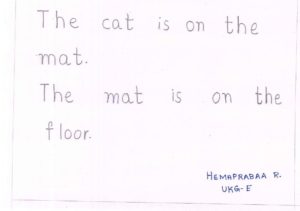 The cat is on the
mat.
The mat is on the
floor.
HEMAPRABAA R.
UKG-E